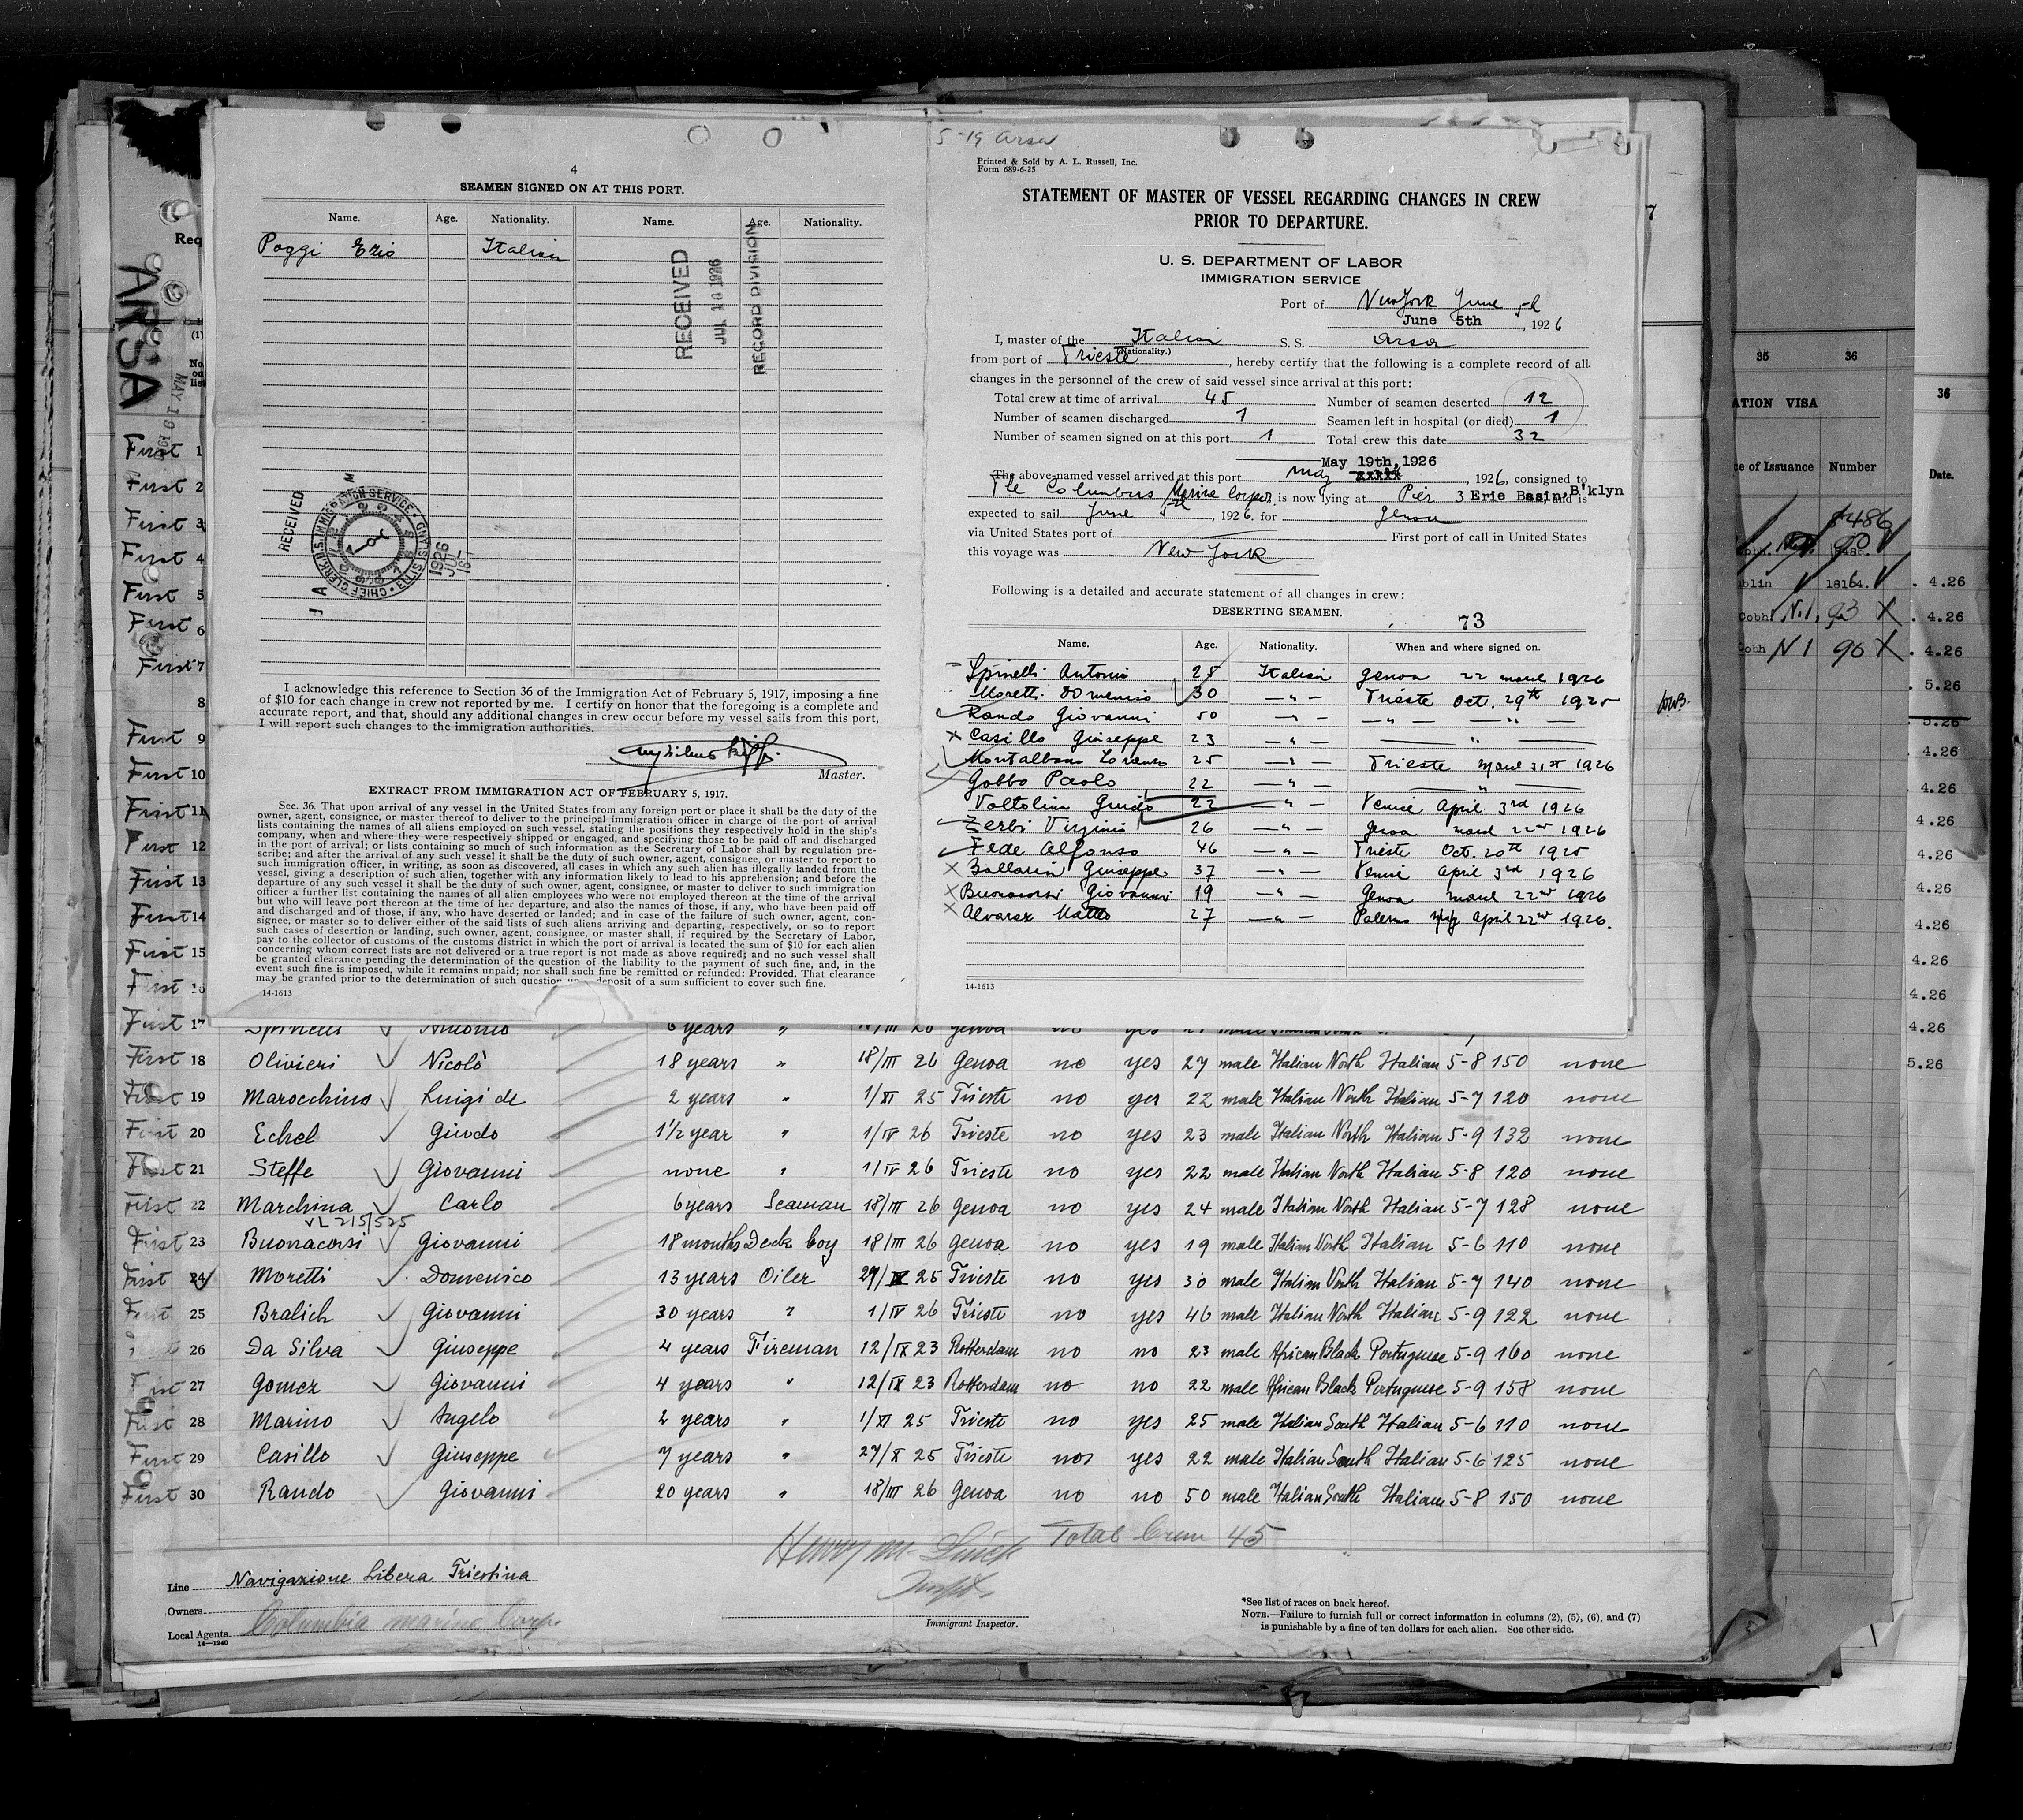 4
SEAMEN SIGNED ON AT THIS PORT.
Name. Age. Nationality. Name. Age. Nationality.
Poggi Ezio Italian
RECEIVED
JUL 10 1926
RECORD DIVISION
RECEIVED
CHIEF CLERK U.S. IMMIGRATION SERVICE ELLIS ISLAND
1926
JUL
I acknowledge this reference to Section 36 of the Immigration Act of February 5, 1917, imposing a fine
of $10 for each change in crew not reported by me. I certify on honor that the foregoing is a complete and
accurate report, and that, should any additional changes in crew occur before my vessel sails from this port,
I will report such changes to the immigration authorities.
Master.
EXTRACT FROM IMMIGRATION ACT OF FEBRUARY 5, 1917.
Sec. 36. That upon arrival of any vessel in the United States from any foreign port or place it shall be the duty of the
owner, agent, consignee, or master thereof to deliver to the principal immigration officer in charge of the port of arrival
lists containing the names of all aliens employed on such vessel, stating the positions they respectively hold in the ship's
company, when and where they were respectively shipped or engaged, and specifying those to be paid off and discharged
in the port of arrival; or lists containing so much of such information as the Secretary of Labor shall by regulation pre-
scribe; and after the arrival of any such vessel it shall be the duty of such owner, agent, consignee, or master to report to
such immigration officer, in writing, as soon as discovered, all cases in which any such alien has illegally landed from the
vessel, giving a description of such alien, together with any information likely to lead to his apprehension; and before the
departure of any such vessel it shall be the duty of such owner, agent, consignee, or master to deliver to such immigration
officer a further list containing the names of all alien employees who were not employed thereon at the time of the arrival
but who will leave port thereon at the time of her departure, and also the names of those, if any, who have been paid off
and discharged and of those, if any, who have deserted or landed; and in case of the failure of such owner, agent, con-
signee, or master so to deliver either of the said lists of such aliens arriving and departing, respectively, or so to report
such cases of desertion or landing, such owner, agent, consignee, or master, shall, if required by the Secretary of Labor,
pay to the collector of customs of the customs district in which the port of arrival is located the sum of $10 for each alien
concerning whom correct lists are not delivered or a true report is not made as above required; and no such vessel shall
be granted clearance pending the determination of the question of the liability to the payment of such fine, and, in the
event such fine is imposed, while it remains unpaid; nor shall such fine be remitted or refunded: Provided, That clearance
may be granted prior to the determination of such question deposit of a sum sufficient to cover such fine.
14-1613
5-19 Arsa
Printed & Sold by A. L. Russell, Inc.
Form 689-6-25
STATEMENT OF MASTER OF VESSEL REGARDING CHANGES IN CREW
PRIOR TO DEPARTURE.
U. S. DEPARTMENT OF LABOR
IMMIGRATION SERVICE
Port of New York June 5th
June 5th, 1926
I, master of the Italian S. S. Arsa
(Nationality.)
from port of Trieste, hereby certify that the following is a complete record of all
changes in the personnel of the crew of said vessel since arrival at this port:
Total crew at time of arrival 45 Number of seamen deserted 12
Number of seamen discharged 1 Seamen left in hospital (or died) 1
Number of seamen signed on at this port 1 Total crew this date 32
May 19th, 1926
The above-named vessel arrived at this port May xxxxx, 1926, consigned to
The Columbus Marine Corpor. is now lying at Pier 3 Erie Basin, B'klyn and is
expected to sail June 5th, 1926. for Genoa
via United States port of First port of call in United States
this voyage was New York
Following is a detailed and accurate statement of all changes in crew:
DESERTING SEAMEN.
73
Name. Age. Nationality. When and where signed on.
Spinelli Antonio 25 Italian Genoa 22 march 1926
Moretti Domenico 30 — " — Trieste Oct. 29th 1925
Rando Giovanni 50 — " — — " — — " —
x Casillo Giuseppe 23 — " — — " —
Montalbano Lorenzo 25 — " — Trieste March 31st 1926
Gobbo Paolo 22 — " — — " —
Voltolin Guido 22 — " — Venice April 3rd 1926
Zerbi Virginio 26 — " — Genoa March 22nd 1926
Fede Alfonso 46 — " — Trieste Oct. 20th 1925
x Ballarin Giuseppe 37 — " — Venice April 3rd 1926
x Buonacorsi Giovanni 19 — " — Genoa March 22nd 1926
x Alvarez Matteo 27 — " — Palermo April 22nd 1926.
14-1613
ARSA
MAY 19 192
Req
(1)
No.
on
list
First 1
First 2
First 3
First 4
First 5
First 6
First 7
8
First 9
First 10
First 11
First 12
First 13
First 14
First 15
First 16
First 17 Spinelli Antonio 6 years " 18/III 26 Genoa no yes
First 18 Olivieri Nicolò 18 years " 18/III 26 Genoa no yes 27 male Italian North Italian 5-8 150 none
First 19 Marocchino Luigi de 2 years " 1/XI 25 Trieste no yes 22 male Italian North Italian 5-7 120 none
First 20 Echel Giudo 1½ year " 1/IV 26 Trieste no yes 23 male Italian North Italian 5-9 132 none
First 21 Steffe Giovanni none " 1/IV 26 Trieste no yes 22 male Italian North Italian 5-8 120 none
First 22 Marchina Carlo 6 years Seaman 18/III 26 Genoa no yes 24 male Italian North Italian 5-7 128 none
VL 215/525
First 23 Buonacorsi Giovanni 18 months Deck boy 18/III 26 Genoa no yes 19 male Italian North Italian 5-6 110 none
First 24 Moretti Domenico 13 years Oiler 29/X 25 Trieste no yes 30 male Italian North Italian 5-7 140 none
First 25 Bralich Giovanni 30 years " 1/IV 26 Trieste no yes 46 male Italian North Italian 5-9 122 none
26 Da Silva Giuseppe 4 years Fireman 12/IX 23 Rotterdam no no 23 male African Black Portuguese 5-9 160 none
First 27 Gomez Giovanni 4 years " 12/IX 23 Rotterdam no no 22 male African Black Portuguese 5-9 158 none
First 28 Marino Angelo 2 years " 1/XI 25 Trieste no yes 25 male Italian South Italian 5-6 110 none
First 29 Casillo Giuseppe 7 years " 27/X 25 Trieste no yes 22 male Italian South Italian 5-6 125 none
First 30 Rando Giovanni 20 years " 18/III 26 Genoa no no 50 male Italian South Italian 5-8 150 none
Total Crew 45
Line Navigazione Libera Triestina
Owners
Local Agents Columbia Marine Corp.
14-1240
Immigrant Inspector.
*See list of races on back hereof.
NOTE.—Failure to furnish full or correct information in columns (2), (5), (6), and (7)
is punishable by a fine of ten dollars for each alien. See other side.
7
35 36
ATION VISA
ce of Issuance Number
8486
blin 18164.
Cobh. N.1. 93 X
Cobh N 1 90 X
36
Date.
. 4.26
. 4.26
. 4.26
. 5.26
5.26
. 4.26
. 4.26
. 4.26
4.26
4.26
4.26
4.26
4.26
4.26
5.26